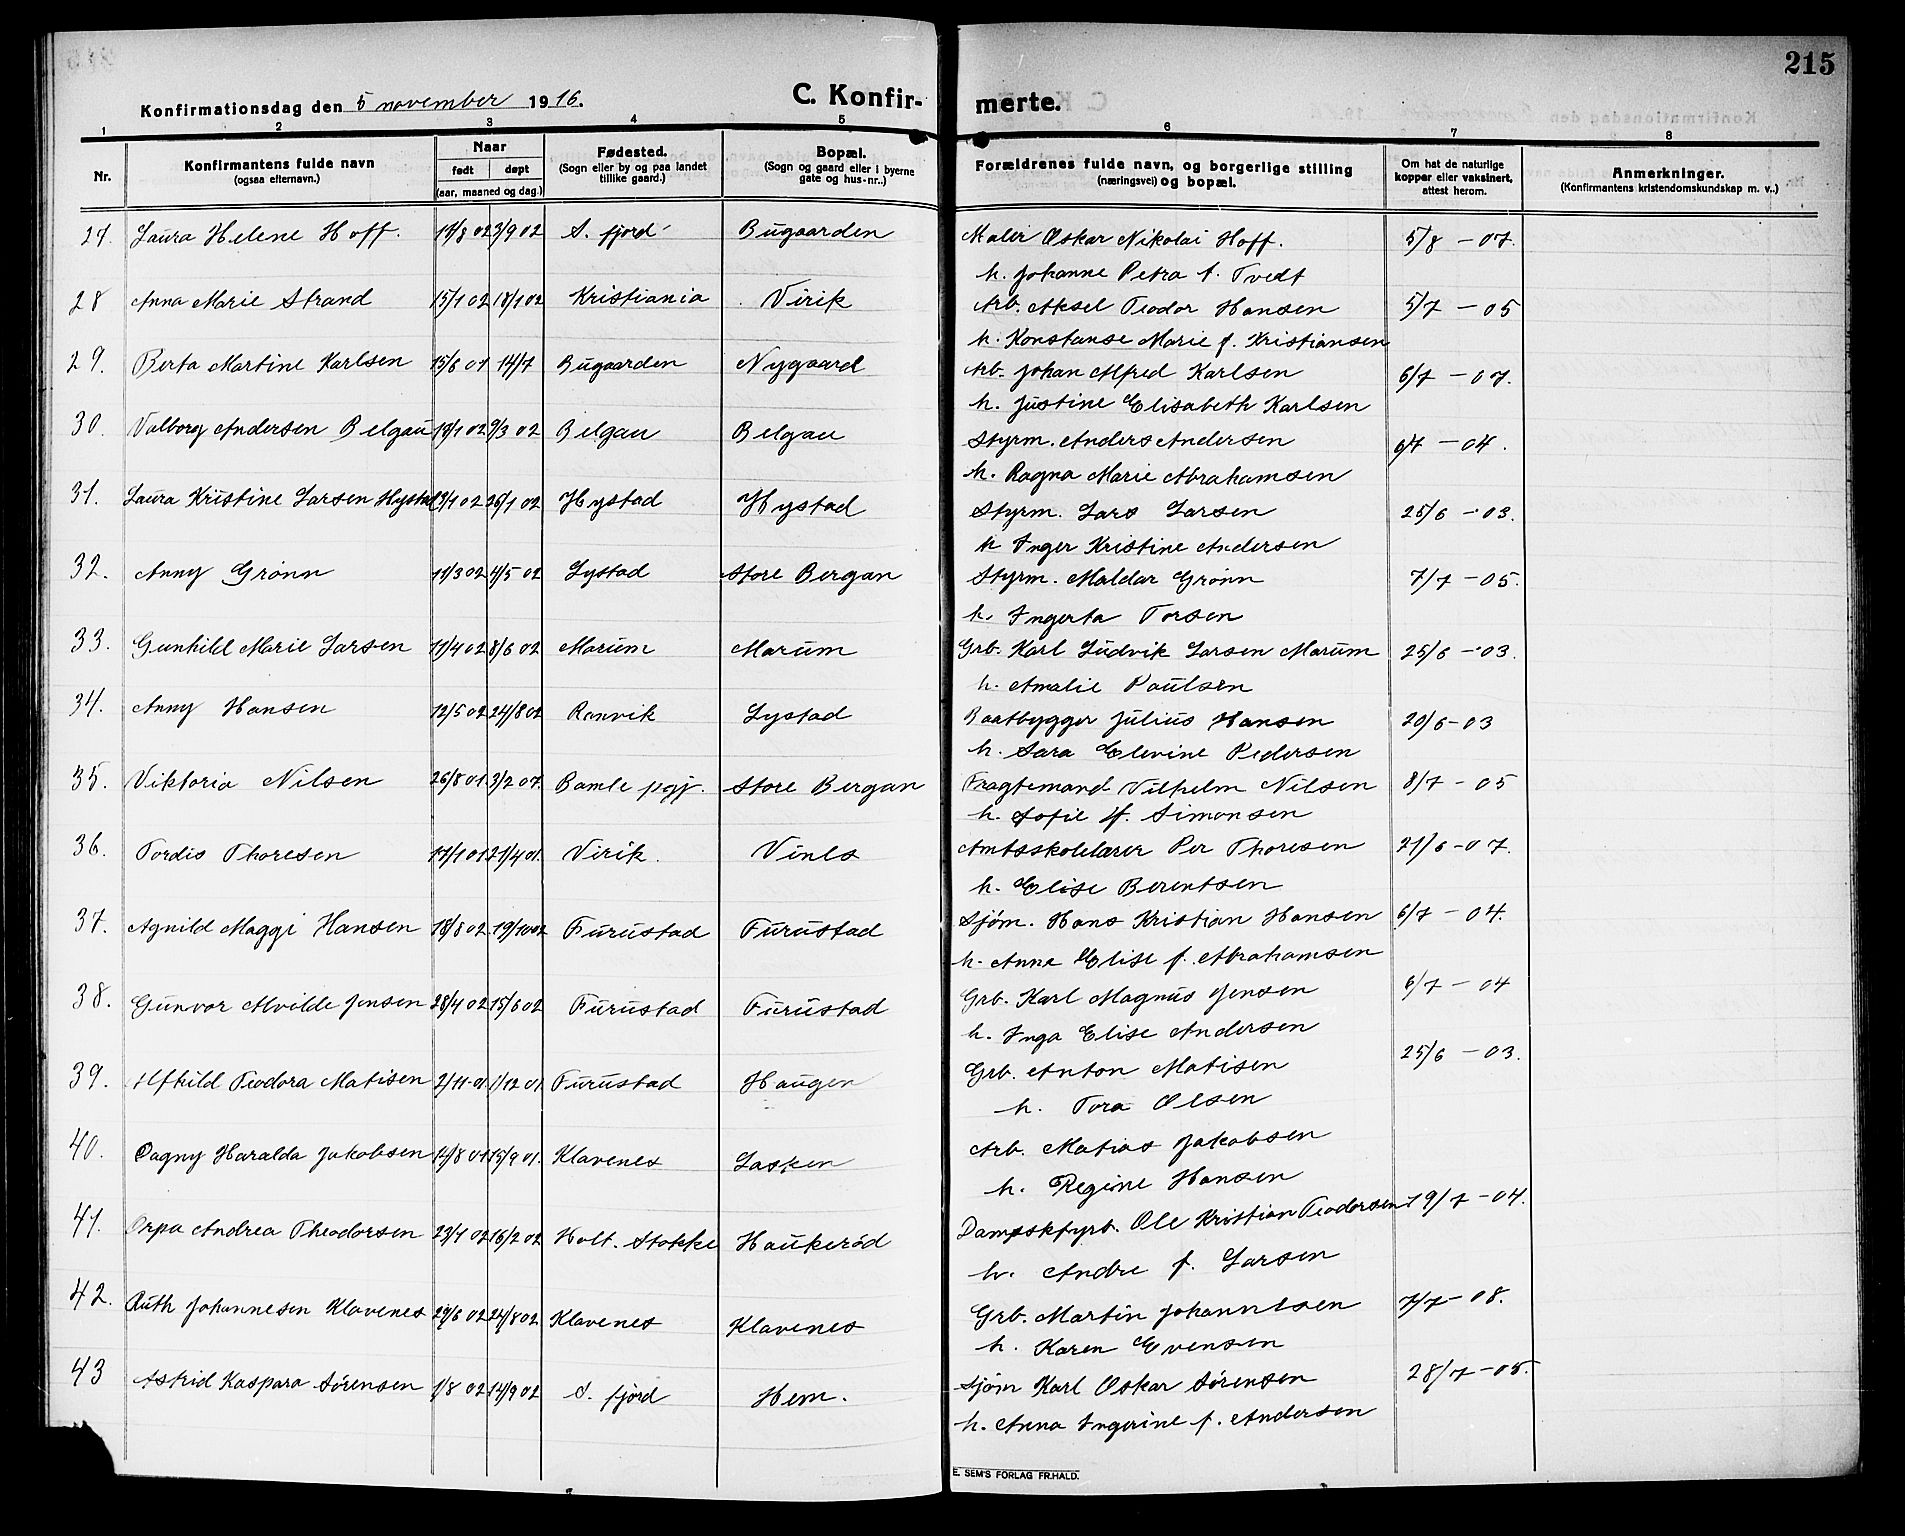 215
Konfirmationsdag den 5 november 1916.
C. Konfir-
merte.
1 2 3 4 5 6 7 8
Nr.
Konfirmantens fulde navn
(ogsaa efternavn.)
Naar
født døpt
(aar, maaned og dag.)
Fødested.
(Sogn eller by og paa landet
tillike gaard.)
Bopæl.
(Sogn og gaard eller i byerne
gate og hus-nr..)
Forældrenes fulde navn, og borgerlige stilling
(næringsvei) og bopæl.
Om hat de naturlige
kopper eller vaksinert,
attest herom.
Anmerkninger.
(Konfirmantens kristendomskundskap m. v..)
27. Laura Helene Hoff. 3/9 02 S. fjord Bugaarden Maler Oskar Nikolai Hoff. 5/8 - 07.
h. Johanne Petra f. Tvedt
28 Anna Marie Strand 15/1 02 18/1 02 Kristiania Virik Arb. Aksel Teodor Hansen 5/7 - 05
h. Konstanse Marie f. Kristiansen
29. Berta Martine Karlsen 15/6 01 14/7 Bugaarden Nygaard Arb. Johan Alfred Karlsen 6/7 - 07.
h. Justine Elisabeth Karlsen
30. Valborg Andersen Belgau 19/1 02 9/3 02 Belgau Belgau Styrm. Anders Andersen 6/7 - 04.
h. Ragna Marie Abrahamsen
31. Laura Kristine Larsen Hystad 26/1 02 Hystad Hystad Styrm. Lars Larsen 25/6 - 03.
h Inger Kristine Andersen
32. Anny Grønn 11/3 02 4/5 02 Lystad Store Bergan Styrm. Maldar Grønn 7/7 - 05.
h. Ingerta Torsen
33. Gunhild Marie Larsen 11/4 02 8/6 02 Marum Marum Grb. Karl Ludvik Larsen Marum 25/6 - 03.
h. Amalie Paulsen
34. Anny Hansen 12/5 02 24/8 02 Ranvik Lystad Baatbygger Julius Hansen 20/6 - 03
h. Sara Elevine Pedersen
35. Viktoria Nilsen 26/8 01. 3/2 07. Bamle pgj. Store Bergan Fragtemand Vilhelm Nilsen 8/7 - 05
h. Sofie f. Simonsen
36. Tordis Thoresen 17/1 01 21/4 01. Virik. Vinls Amtsskolelærer Per Thoresen 21/6 - 07.
h. Elise Berentsen
37. Agnild Maggi Hansen 18/8 02. 19/10 02 Furustad Furustad Sjøm. Hans Kristian Hansen 6/7 - 04.
h. Anna Elise f. Abrahamsen
38. Gunvor Alvilde Jensen 28/4 02 15/6 02 Furustad Furustad Grb. Karl Magnus Jensen 6/7 - 04
h. Inga Elise Andersen
39. Alfhild Teodora Matisen 2/11-01. 1/12 01. Furustad Haugen Grb. Anton Matisen 25/6 - 03.
h. Tora Olsen
40. Dagny Haralda Jakobsen 14/8 01 15/9 01. Klavenes Lasken Arb. Matias Jakobsen
h. Regine Hansen
41. Orpa Andrea Theodorsen 23/1 02 16/2 02 Holt. Stokke Haukerød Dampskfyrb. Ole Kristian Teodorsen 19/7 - 04.
h. Andre f. Larsen
42. Ruth Johannesen Klavenes 29/6 02 24/8 02 Klavenes Klavenes Grb. Martin Johannesen 7/7 - 08.
h. Karen Evensen
43 Astrid Kaspara Sørensen 1/8 02 14/9 02 S. fjord Hem. Sjøm Karl Oskar Sørensen 28/7 - 05.
h. Anna Ingerine f. Andersen
E. SEM'S FORLAG FR.HALD.